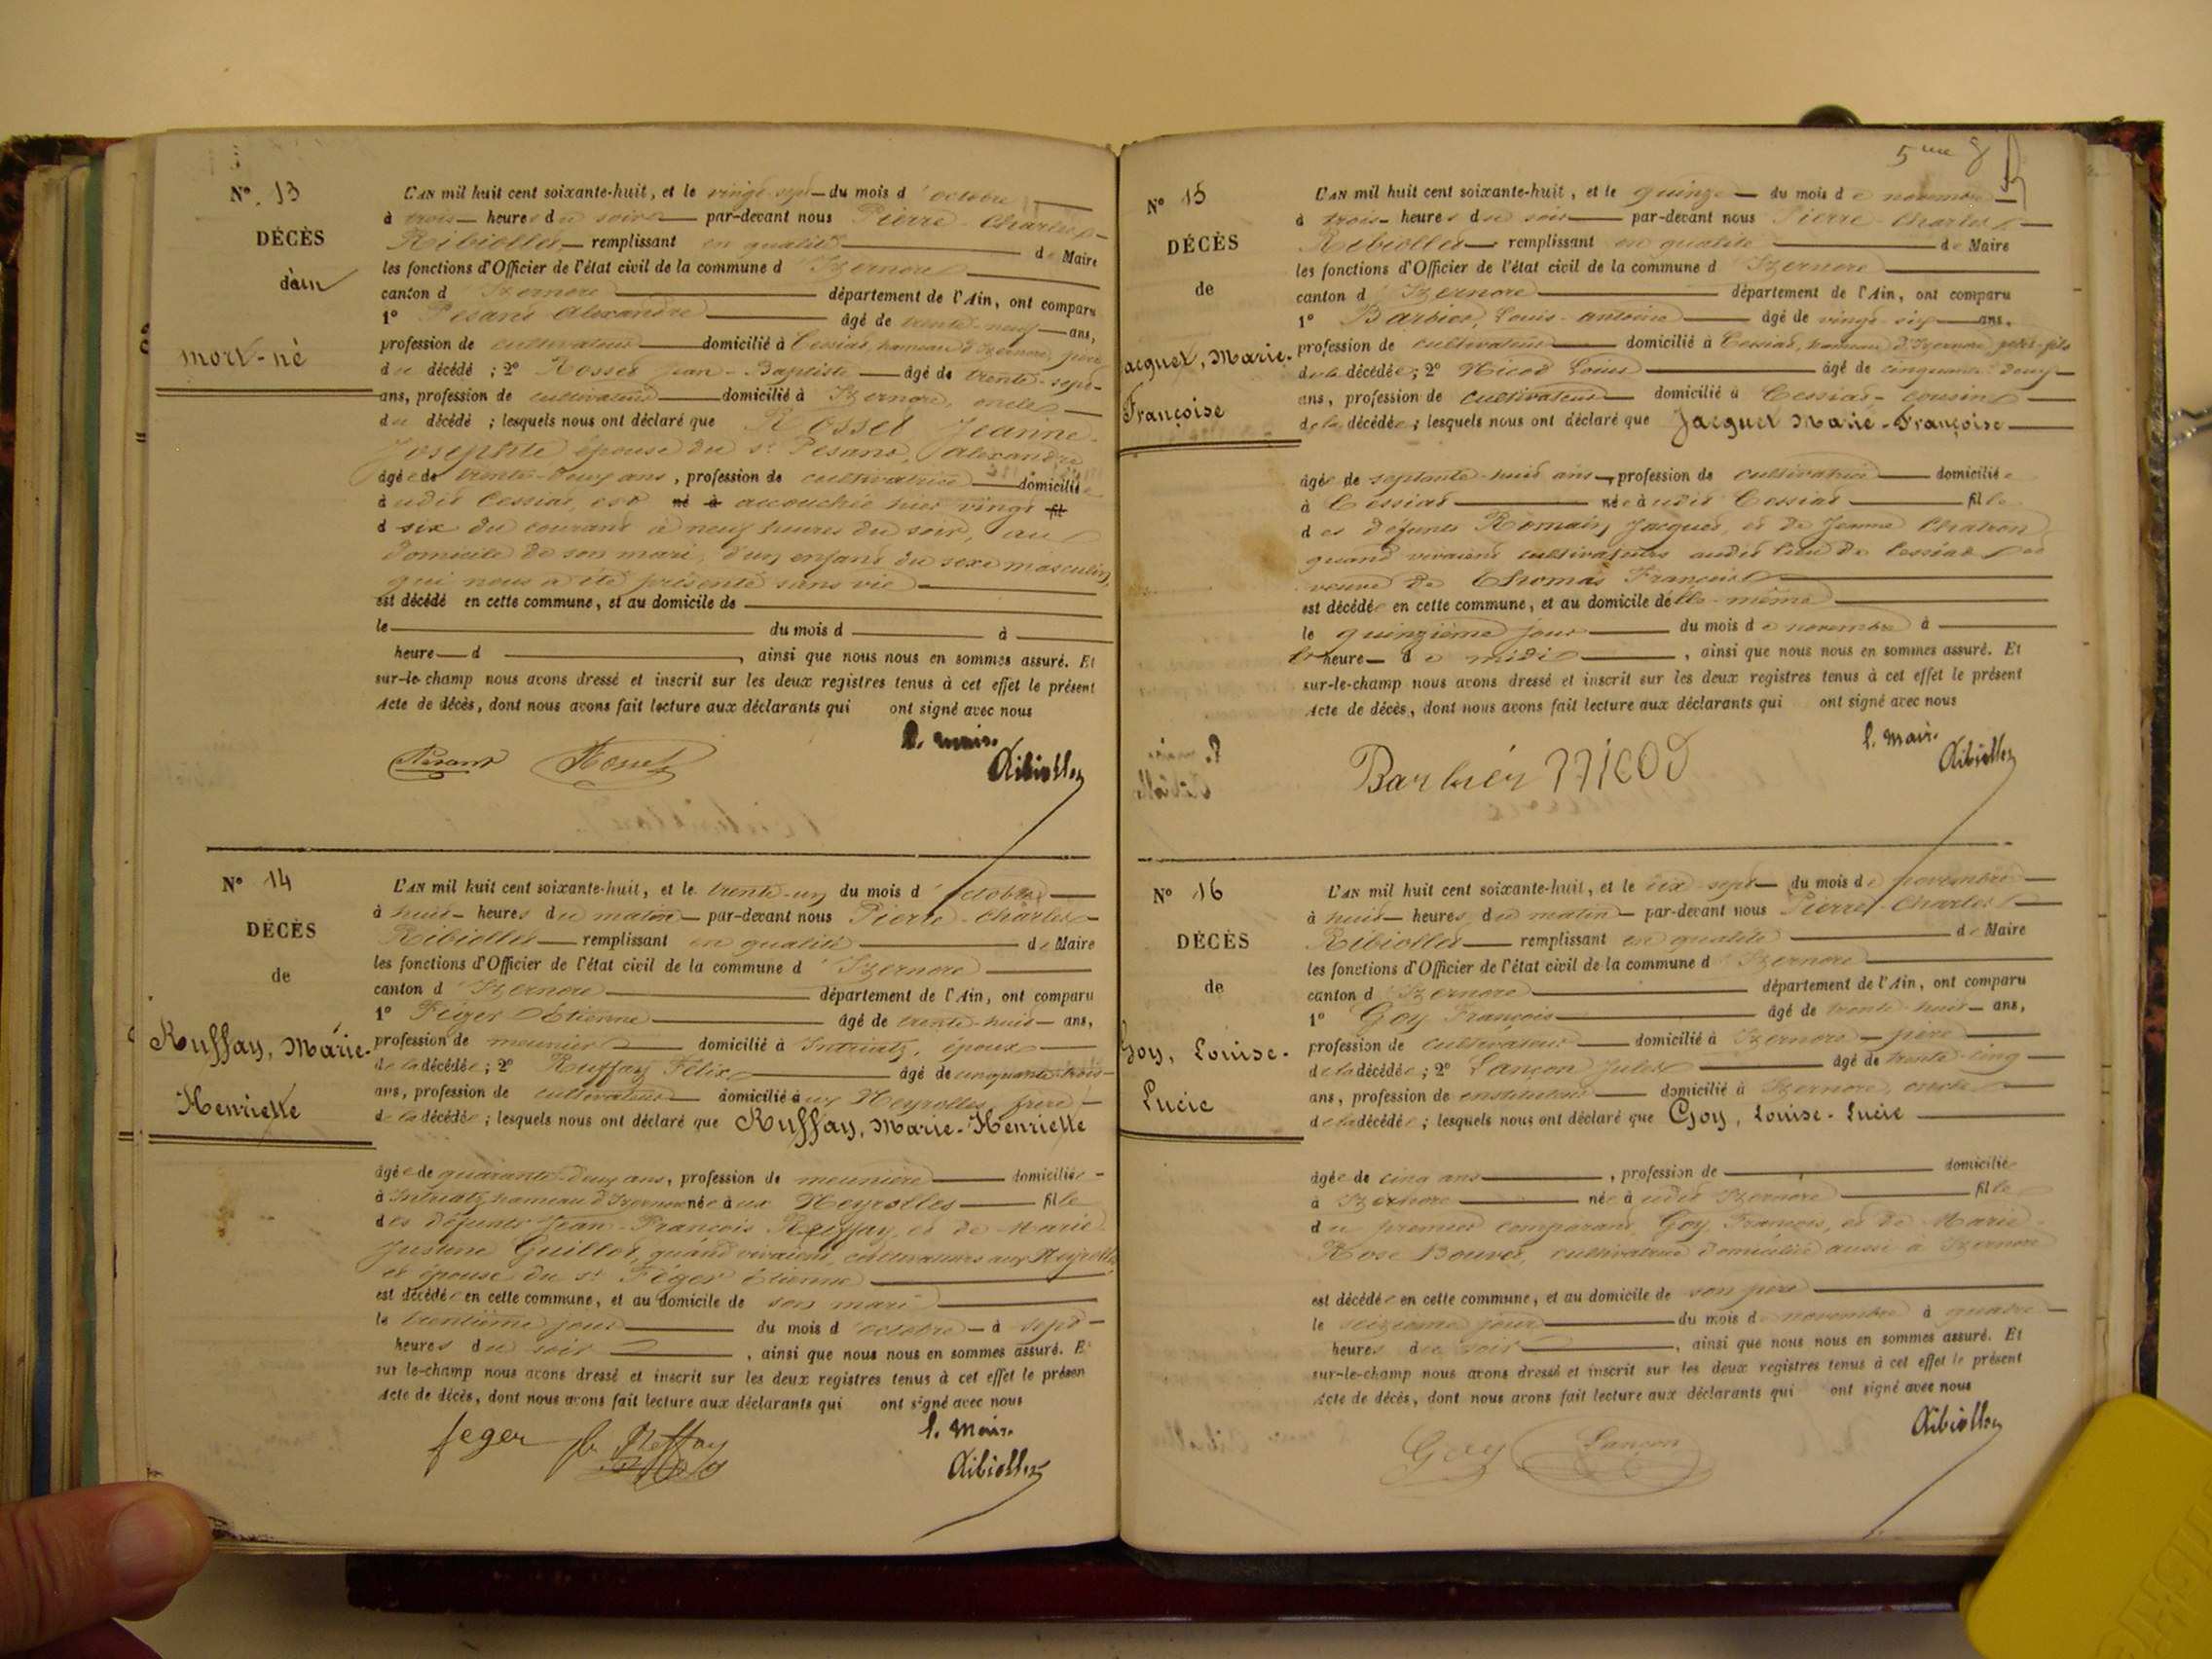 N°. 13
DÉCÈS
d'un
mort-né
L'AN mil huit cent soixante-huit, et le vingt sept du mois d'octobre
à trois heures du soir par-devant nous Pierre-Charles
Ribiollet remplissant en qualité de Maire
les fonctions d'Officier de l'état civil de la commune d'Izernore
canton d'Izernore département de l'Ain, ont comparu
1° Pesant Alexandre âgé de trente-neuf ans,
profession de cultivateur domicilié à Cessiat, hameau d'Izernore, père
du décédé ; 2° Rosset Jean-Baptiste âgé de trente-sept
ans, profession de cultivateur domicilié à Izernore, oncle
du décédé ; lesquels nous ont déclaré que Rosset Jeanne-
Josephte épouse du st Pesant, Alexandre
âgée de trente-deux ans, profession de cultivatrice domiciliée
à udit Cessiat, est né à accouchée hier vingt fil
d six du courant à neuf heures du soir, au
domicile de son mari, d'un enfant du sexe masculin
qui nous a été présenté sans vie
est décédé en cette commune, et au domicile de
le du mois d à
heure d , ainsi que nous nous en sommes assuré. Et
sur-le-champ nous avons dressé et inscrit sur les deux registres tenus à cet effet le présent
Acte de décès, dont nous avons fait lecture aux déclarants qui ont signé avec nous
Pesant Rosset l. maire
Ribiollet
N° 14
DÉCÈS
de
Ruffay, Marie-
Henriette
L'AN mil huit cent soixante-huit, et le trente-un du mois d'octobre
à huit heures du matin par-devant nous Pierre-Charles
Ribiollet remplissant en qualité de Maire
les fonctions d'Officier de l'état civil de la commune d'Izernore
canton d'Izernore département de l'Ain, ont comparu
1° Féger Étienne âgé de trente-huit ans,
profession de meunier domicilié à Intriatz, époux
de la décédée ; 2° Ruffay Félix âgé de cinquante-trois
ans, profession de cultivateur domicilié aux Neyrolles, frère
de la décédée ; lesquels nous ont déclaré que Ruffay, Marie-Henriette
âgée de quarante-deux ans, profession de meunière domiciliée
à Intriatz hameau d'Izernore née aux Neyrolles fille
des défunts Jean-François Ruffay, et de Marie
Justine Guillot, quand vivaient, cultivateurs aux Neyrolles
et épouse du st Féger Étienne
est décédée en cette commune, et au domicile de son mari
le trentième jour du mois d'octobre à sept
heures du soir , ainsi que nous nous en sommes assuré. E
sur le-champ nous avons dressé et inscrit sur les deux registres tenus à cet effet le présen
Acte de décès, dont nous avons fait lecture aux déclarants qui ont signé avec nous
feger fx Reffay l. Maire
Ribiollet
5me
N° 15
DÉCÈS
de
Jacquet, Marie-
Françoise
L'AN mil huit cent soixante-huit, et le quinze du mois de novembre
à trois heures du soir par-devant nous Pierre-Charles
Ribiollet remplissant en qualité de Maire
les fonctions d'Officier de l'état civil de la commune d'Izernore
canton d'Izernore département de l'Ain, ont comparu
1° Barbier, Louis-Antoine âgé de vingt-six ans,
profession de cultivateur domicilié à Cessiat, hameau d'Izernore, petit-fils
de la décédée ; 2° Nicod Louis âgé de cinquante-deux
ans, profession de cultivateur domicilié à Cessiat, cousin
de la décédée ; lesquels nous ont déclaré que Jacquet Marie-Françoise
âgée de septante-huit ans, profession de cultivatrice domiciliée
à Cessiat née audit Cessiat fille
des défunts Romain Jacquet, et de Jeanne Chatron
quand vivaient cultivateurs audit lieu de Cessiat et
veuve de Thomas François
est décédée en cette commune, et au domicile d'elle-même
le quinzième jour du mois de novembre à
l' heure de midi , ainsi que nous nous en sommes assuré. Et
sur-le-champ nous avons dressé et inscrit sur les deux registres tenus à cet effet le présent
Acte de décès, dont nous avons fait lecture aux déclarants qui ont signé avec nous
Barbier NICOD l. maire
Ribiollet
N° 16
DÉCÈS
de
Goy, Louise-
Lucie
L'AN mil huit cent soixante-huit, et le dix-sept du mois de novembre
à huit heures du matin par-devant nous Pierre-Charles
Ribiollet remplissant en qualité de Maire
les fonctions d'Officier de l'état civil de la commune d'Izernore
canton d'Izernore département de l'Ain, ont comparu
1° Goy François âgé de trente-huit ans,
profession de cultivateur domicilié à Izernore père
de la décédée ; 2° Lançon Jules âgé de trente-cinq
ans, profession de instituteur domicilié à Izernore, oncle
de la décédée ; lesquels nous ont déclaré que Goy, Louise-Lucie
âgée de cinq ans , profession de domiciliée
à Izernore née audit Izernore fille
du premier comparant Goy François, et de Marie-
Rose Bouvet, cultivatrice domiciliée aussi à Izernore
est décédée en cette commune, et au domicile de son père
le seizième jour du mois de novembre à quatre
heures du soir , ainsi que nous nous en sommes assuré. Et
sur-le-champ nous avons dressé et inscrit sur les deux registres tenus à cet effet le présent
Acte de décès, dont nous avons fait lecture aux déclarants qui ont signé avec nous
Goy Lançon Ribiollet